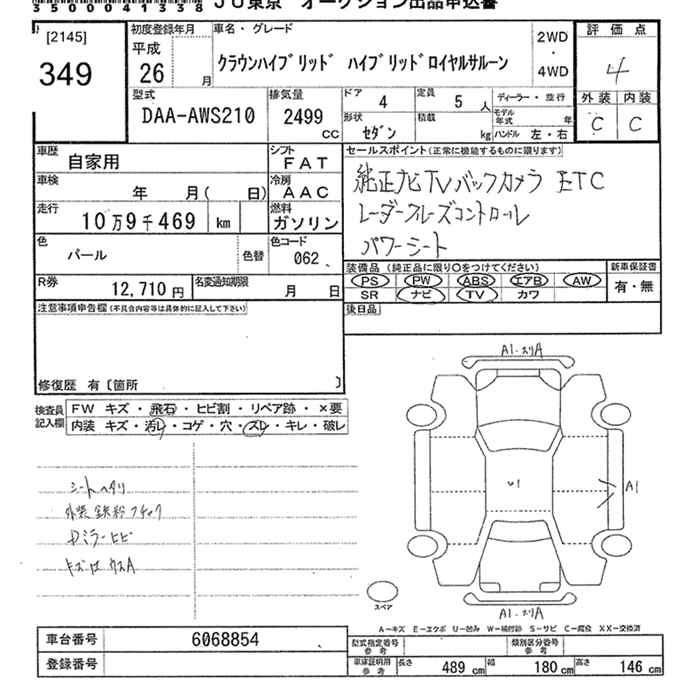 350004138 JU東京 オークション出品申込書
[2145]
349
初度登録年月 平成 26 月
車名・グレード
クラウンハイブリッド ハイブリッドロイヤルサルーン
2WD
・
4WD
評価点
4
外装 内装
C C
型式
DAA-AWS210
排気量
2499 CC
ドア 4
定員 5 人
ディーラー・並行
形状 セダン
積載 kg
モデル年式 年
ハンドル 左・右
車歴 自家用
シフト FAT
車検 年 月( 日)
冷房 AAC
走行 10万9千469 km
燃料 ガソリン
色 パール 色替
色コード 062
R券 12,710円
名変通知期限 月 日
セールスポイント(正常に機能するものに限ります)
純正ナビTVバックカメラ ETC
レーダークルーズコントロール
パワーシート
装備品 (純正品に限り○をつけてください)
PS PW ABS エアB AW
SR ナビ TV カワ
新車保証書
有・無
後日品
注意事項申告欄(不具合内容等は具体的に記入して下さい)
修復歴 有〔箇所 〕
検査員記入欄
FW キズ・飛石・ヒビ割・リペア跡・×要
内装 キズ・汚レ・コゲ・穴・スレ・キレ・破レ
シートヘタリ
外装 鉄粉
ミラーヒビ
A1・ホリA
A1
A1・ホリA
スペア
A-キズ E-エクボ U-凹み W-補修跡 S-サビ C-腐食 XX-交換済
車台番号 6068854
登録番号
型式指定番号 参考
類別区分番号 参考
車庫証明用 参考
長さ 489 cm 幅 180 cm 高さ 146 cm